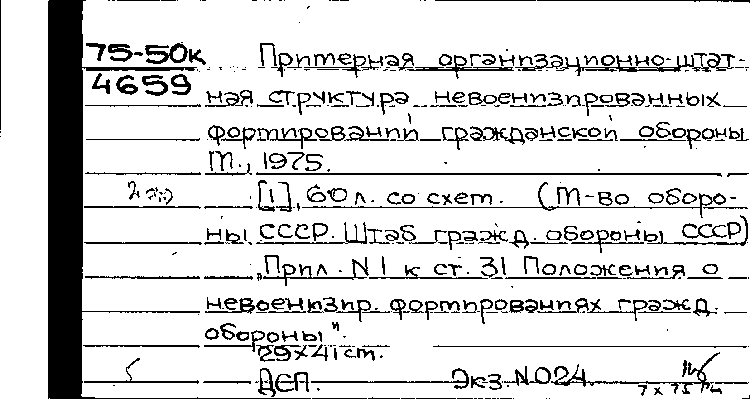 75-50к Примерная организационно-штат-
4659 ная структура невоенизированных
формирований гражданской обороны
М., 1975.
[1], 60 л. со схем. (М-во оборо-
ны СССР. Штаб гражд. обороны СССР)
„Прил. N 1 к ст. 31 Положения о
невоенизир. формированиях гражд.
обороны".
29×41 см.
5 ДСП. Экз. N024.